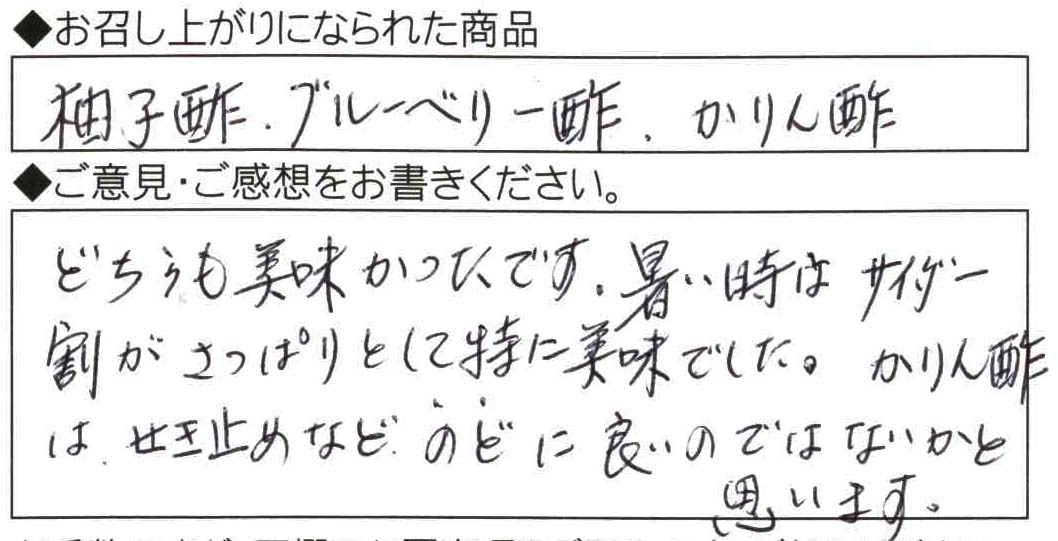 ◆お召し上がりになられた商品
柚子酢、ブルーベリー酢、かりん酢
◆ご意見・ご感想をお書きください。
どちらも美味かったです。暑い時はサイダー
割がさっぱりとして特に美味でした。かりん酢
は、せき止めなど、のどに良いのではないかと
思います。